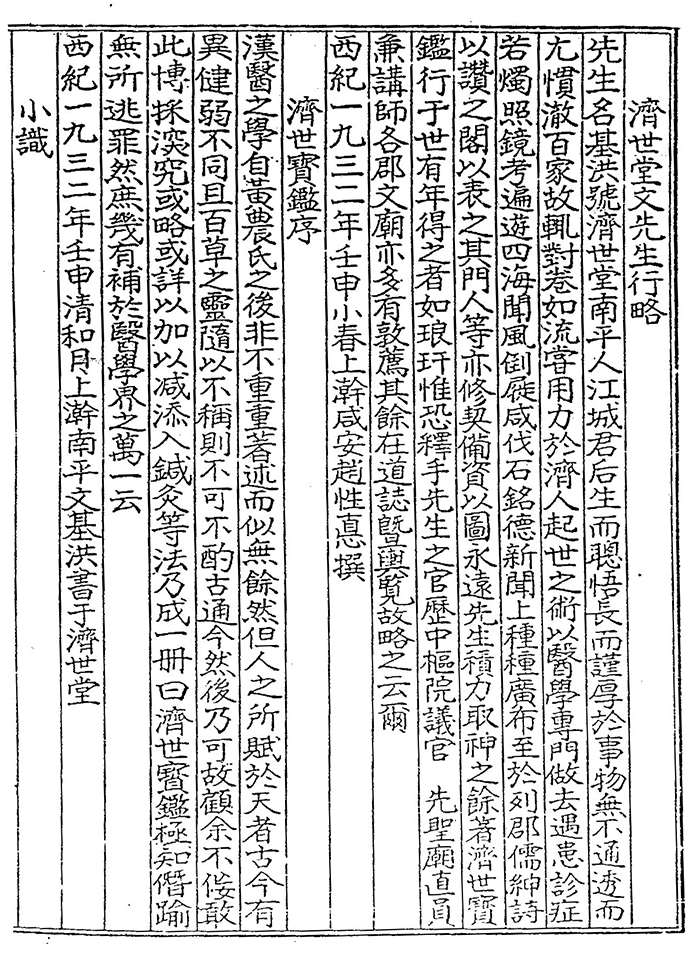 濟世堂文先生行略
先生名基洪號濟世堂南平人江城君后生而聰悟長而謹厚於事物無不通透而
尢慣澈百家故輒對卷如流甞用力於濟人起世之術以醫學專門做去遇患診症
若燭照鏡考遍遊四海聞風倒屣咸伐石銘德新聞上種種廣布至於列郡儒紳詩
以讚之閣以表之其門人等亦修契備資以圖永遠先生積力取神之餘著濟世寶
鑑行于世有年得之者如琅玕惟恐釋手先生之官歷中樞院議官 先聖廟直員
兼講師各郡文廟亦多有敦薦其餘在道誌曁輿覽故略之云爾
西紀一九三二年壬申小春上澣咸安趙性悳撰
濟世寶鑑序
漢醫之學自黃農氏之後非不重重著述而似無餘然但人之所賦於天者古今有
異健弱不同且百草之靈隨以不稱則不可不酌古通今然後乃可故顧余不侫敢
此博採深究或略或詳以加以减添入鍼灸等法乃成一冊曰濟世寶鑑極知僭踰
無所逃罪然庶幾有補於醫學界之萬一云
西紀一九三二年壬申清和月上澣南平文基洪書于濟世堂
小識